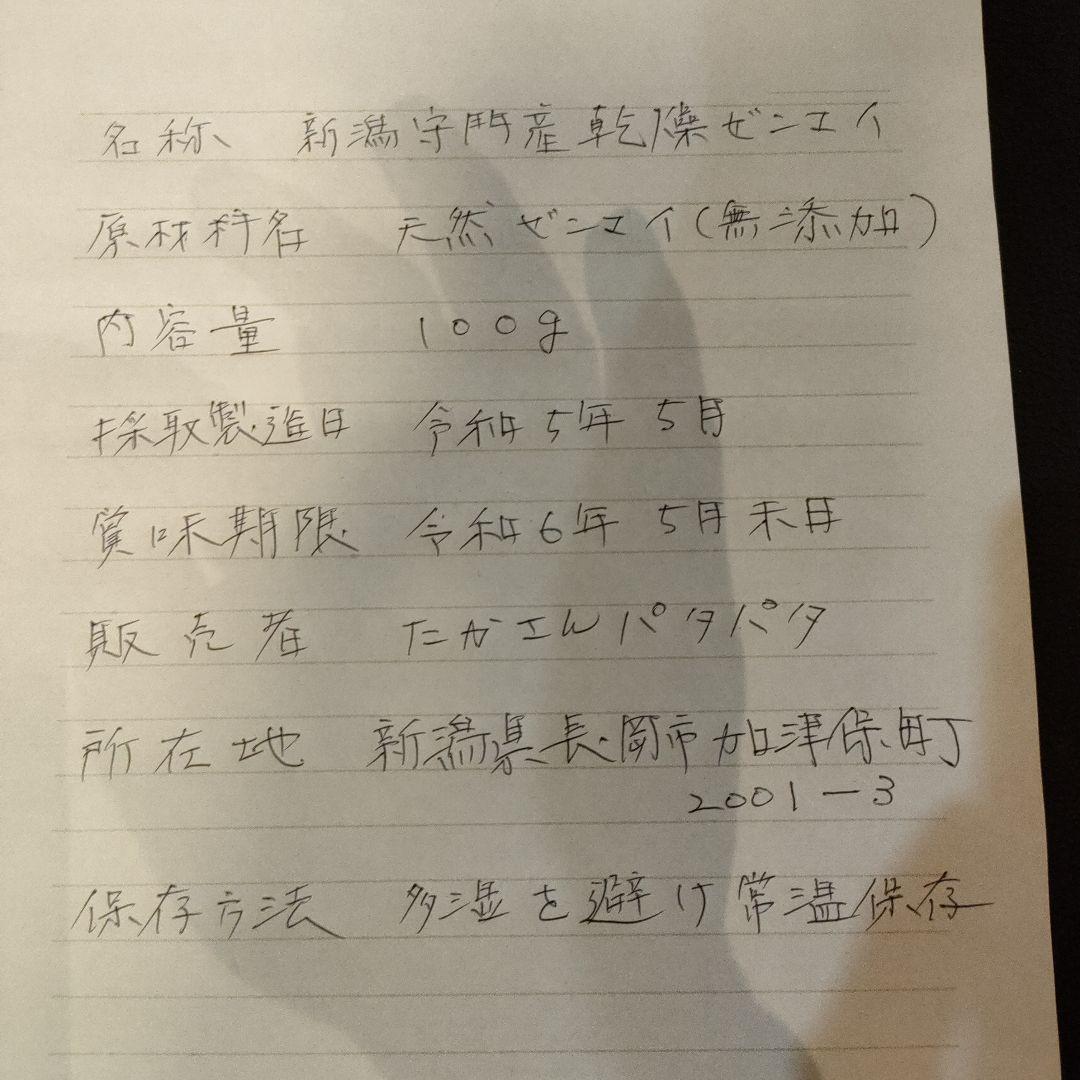 名称 新潟守門産乾燥ゼンエイ
原材料名 天然ゼンエイ(無添加)
内容量 100g
採取製造日 令和5年 5月
賞味期限 令和6年 5月末日
販売者 たかさんパタパタ
所在地 新潟県長岡市加津保町
2001-3
保存方法 多湿を避け常温保存